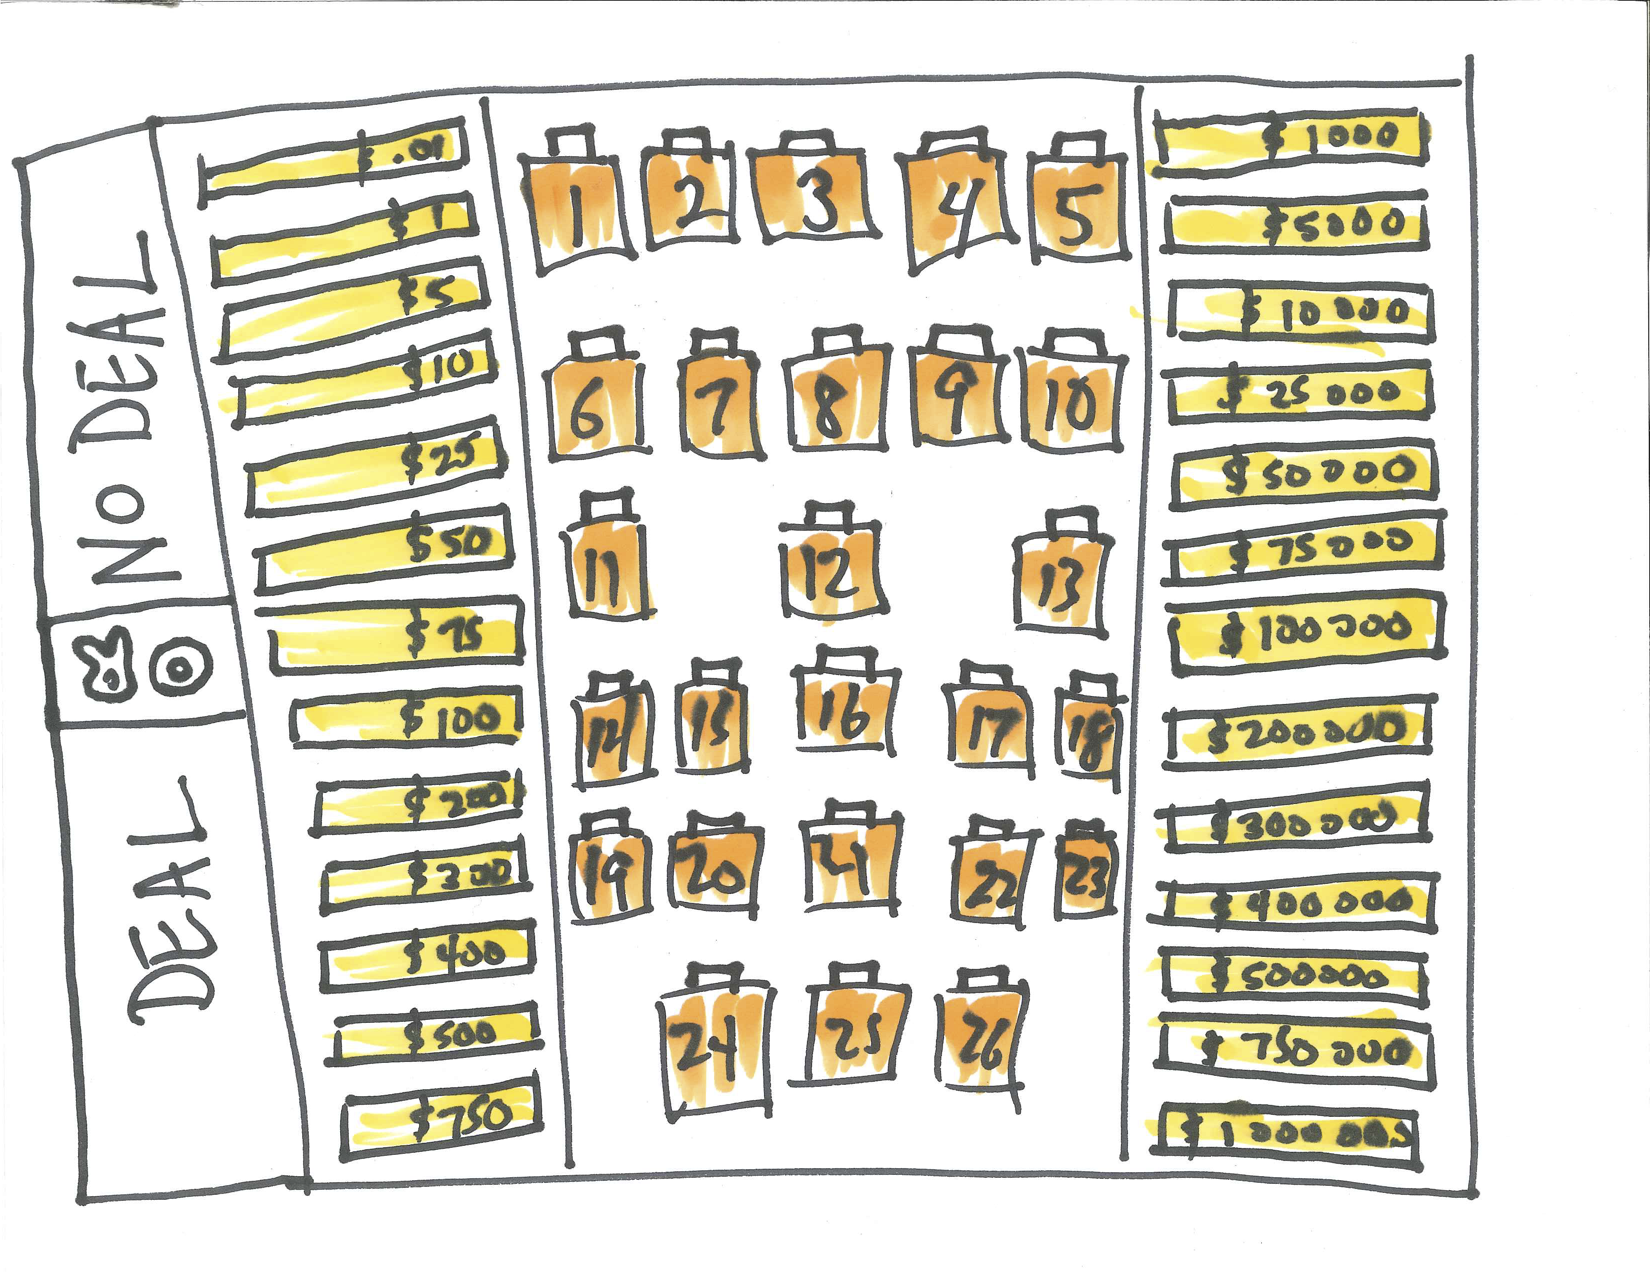 NO DEAL
DEAL
$.01
$1
$5
$10
$25
$50
$75
$100
$200
$300
$400
$500
$750
1 2 3 4 5
6 7 8 9 10
11 12 13
14 15 16 17 18
19 20 21 22 23
24 25 26
$1000
$5000
$10000
$25000
$50000
$75000
$100000
$200000
$300000
$400000
$500000
$750000
$1000000